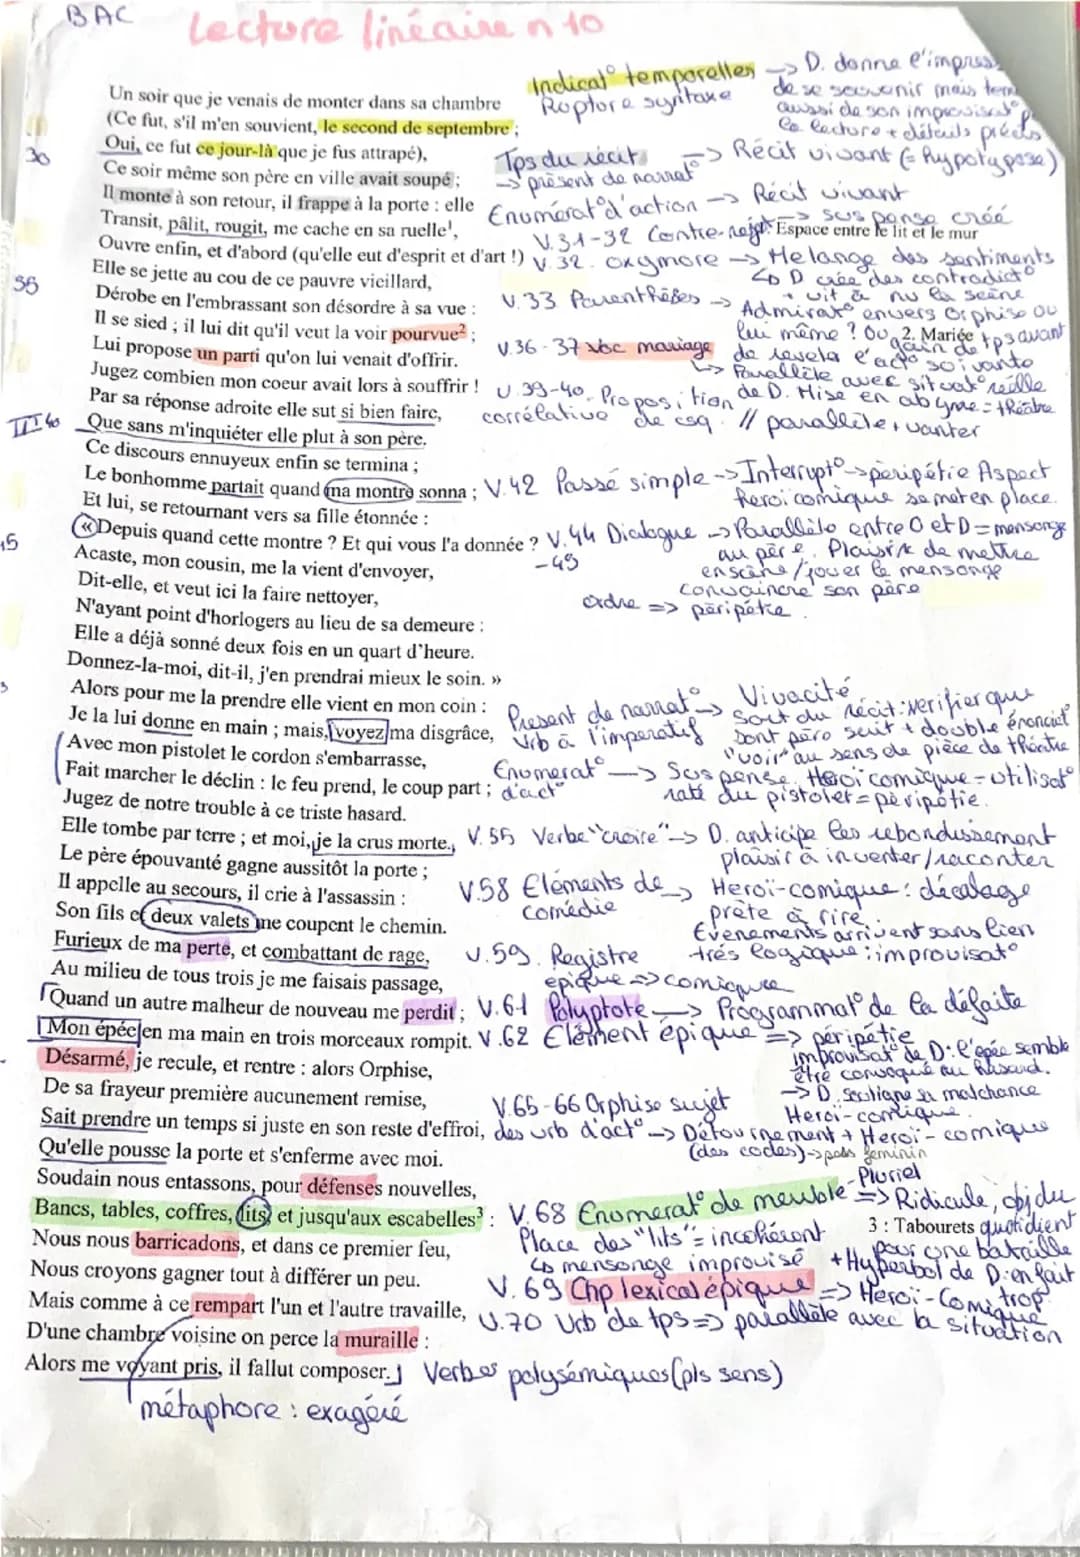 BAC
Lecture linéaire n 10
Indicat° temporelles -> D. donne l'impress
Ruptore syntaxe
de se souvenir mais tem
aussi de son improvisat° p
la lecture + détails précis
Un soir que je venais de monter dans sa chambre
(Ce fut, s'il m'en souvient, le second de septembre ;
Oui, ce fut ce jour-là que je fus attrapé),
30
Tps du récit -> Récit vivant (= hypotypose)
-> présent de narrat°
Ce soir même son père en ville avait soupé ;
Il monte à son retour, il frappe à la porte : elle
Enumérat° d'action -> Récit vivant
-> suspense créé
Transit, pâlit, rougit, me cache en sa ruelle¹,
V.31-32 Contre-rejet
Espace entre le lit et le mur
Ouvre enfin, et d'abord (qu'elle eut d'esprit et d'art !)
V.32. oxymore -> Mélange des sentiments
↳ D crée des contradict°
+ vit à nu la scène
Elle se jette au cou de ce pauvre vieillard,
35
Dérobe en l'embrassant son désordre à sa vue :
V.33 Parenthèses -> Admirat° envers Orphise ou
lui même ? Ou gain de tps avant
2. Mariée
de révéler l'act° suivante
Il se sied ; il lui dit qu'il veut la voir pourvue² ;
V.36-37 voc mariage
↳ Parallèle avec situat° réelle
de D. Mise en abyme = théâtre
Lui propose un parti qu'on lui venait d'offrir.
Jugez combien mon coeur avait lors à souffrir !
V.39-40. Proposition
corrélative de csq. // parallèle, vanter
Par sa réponse adroite elle sut si bien faire,
III 40
Que sans m'inquiéter elle plut à son père.
Ce discours ennuyeux enfin se termina ;
Le bonhomme partait quand ma montre sonna ;
V.42 Passé simple -> Interrupt° -> péripétie Aspect
heroïcomique se met en place.
Et lui, se retournant vers sa fille étonnée :
«Depuis quand cette montre ? Et qui vous l'a donnée ?
V.44 Dialogue -> Parallèle entre O et D = mensonge
-49
au père. Plaisir de mettre
en scène/jouer le mensonge
convaincre son père
45
Acaste, mon cousin, me la vient d'envoyer,
Dit-elle, et veut ici la faire nettoyer,
ordre => péripétie.
N'ayant point d'horlogers au lieu de sa demeure :
Elle a déjà sonné deux fois en un quart d'heure.
Donnez-la-moi, dit-il, j'en prendrai mieux le soin. »
Alors pour me la prendre elle vient en mon coin :
Présent de narrat° -> Vivacité
Je la lui donne en main ; mais, voyez ma disgrâce,
Vrb à l'imperatif
Sort du récit : verifier que
son père suit + double énonciat°
"voir" au sens de pièce de théâtre
Avec mon pistolet le cordon s'embarrasse,
Fait marcher le déclin : le feu prend, le coup part ;
Enumerat° d'act° -> Suspense. Heroï comique = utilisat°
raté du pistolet = péripétie.
Jugez de notre trouble à ce triste hasard.
Elle tombe par terre ; et moi, je la crus morte.
V.55 Verbe "croire" -> D. anticipe les rebondissement
plaisir à inventer/raconter
Le père épouvanté gagne aussitôt la porte ;
Il appelle au secours, il crie à l'assassin :
V.58 Eléments de comédie -> Heroï-comique : décalage
prête à rire.
Son fils et deux valets me coupent le chemin.
Evènements arrivent sans lien
très logique : improvisat°
Furieux de ma perte, et combattant de rage,
V.59. Registre
épique => comique
Au milieu de tous trois je me faisais passage,
Quand un autre malheur de nouveau me perdit ;
V.61 Polyptote -> Programmat° de la défaite
Mon épée en ma main en trois morceaux rompit.
V.62 Elément épique => péripétie
improvisat° de D : l'épée semble
être convoquée au hasard.
Désarmé, je recule, et rentre : alors Orphise,
-> D. souligne sa malchance
Heroï-comique.
De sa frayeur première aucunement remise,
V.65-66 Orphise sujet
Sait prendre un temps si juste en son reste d'effroi,
des vrb d'act° -> Détournement + Heroï-comique
(des codes) -> pers féminin
Qu'elle pousse la porte et s'enferme avec moi.
Soudain nous entassons, pour défenses nouvelles,
Bancs, tables, coffres, lits, et jusqu'aux escabelles³ :
V.68 Enumerat° de meuble - Pluriel
=> Ridicule, obj du
quotidient
3 : Tabourets
pour une bataille
Place des "lits" = incohérent
↳ mensonge improvisé
+ Hyperbol de D. en fait
trop
Nous nous barricadons, et dans ce premier feu,
Nous croyons gagner tout à différer un peu.
V.69 Chp lexical épique => Heroï-Comique
Mais comme à ce rempart l'un et l'autre travaille,
V.70 Vrb de tps => parallèle avec la situation
D'une chambre voisine on perce la muraille :
Alors me voyant pris, il fallut composer.
Verbes polysémiques (pls sens)
métaphore : exagéré